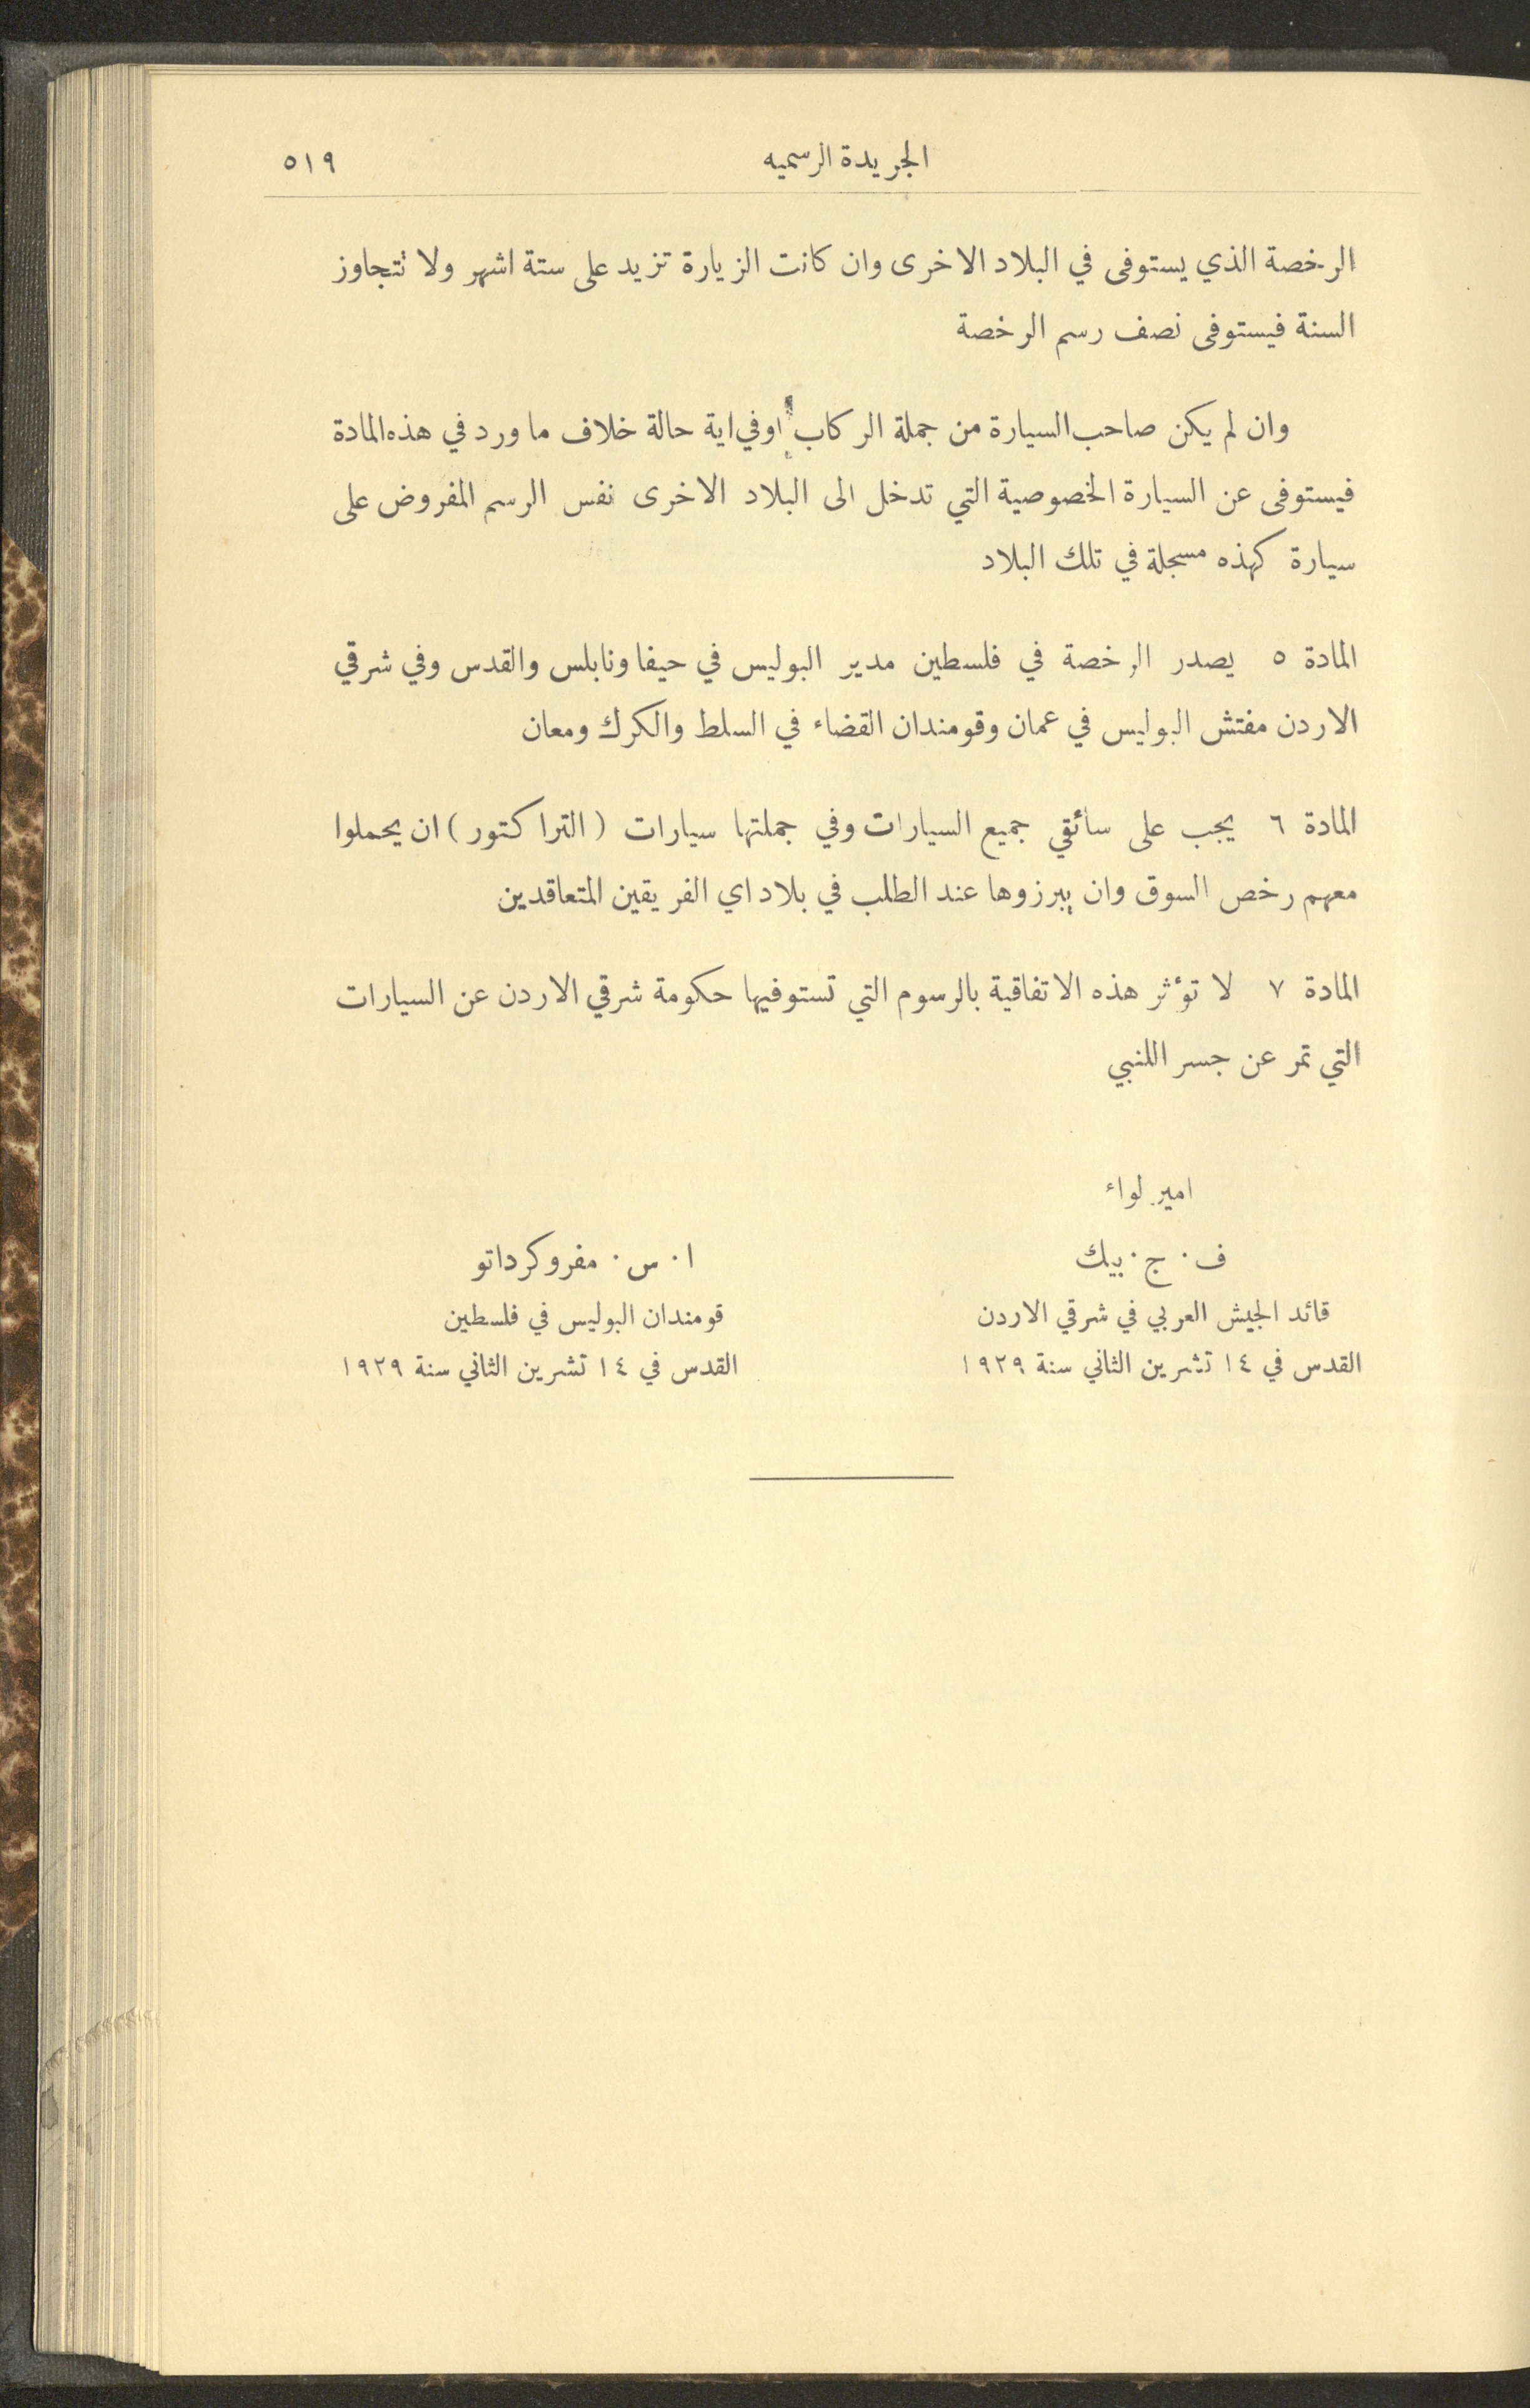 الجريدة الرسميه
٥١٩
الرخصة الذي يستوفى في البلاد الاخرى وان كانت الزيارة تزيد على ستة اشهر ولا تتجاوز
السنة فيستوفى نصف رسم الرخصة
وان لم يكن صاحب السيارة من جملة الركاب اوفي اية حالة خلاف ما ورد في هذه المادة
فيستوفى عن السيارة الخصوصية التي تدخل الى البلاد الاخرى نفس الرسم المفروض على
سيارة كهذه مسجلة في تلك البلاد
المادة ٥ يصدر الرخصة في فلسطين مدير البوليس في حيفا ونابلس والقدس وفي شرقي
الاردن مفتش البوليس في عمان وقومندان القضاء في السلط والكرك ومعان
المادة ٦ يجب على سائقي جميع السيارات وفي جملتها سيارات (التراكتور) ان يحملوا
معهم رخص السوق وان يبرزوها عند الطلب في بلاد اي الفريقين المتعاقدين
المادة ٧ لا تؤثر هذه الاتفاقية بالرسوم التي تستوفيها حكومة شرقي الاردن عن السيارات
التي تمر عن جسر اللنبي
امير لواء
ف. ج. بيك
قائد الجيش العربي في شرقي الاردن
القدس في ١٤ تشرين الثاني سنة ١٩٢٩
ا. س. مفروكرداتو
قومندان البوليس في فلسطين
القدس في ١٤ تشرين الثاني سنة ١٩٢٩